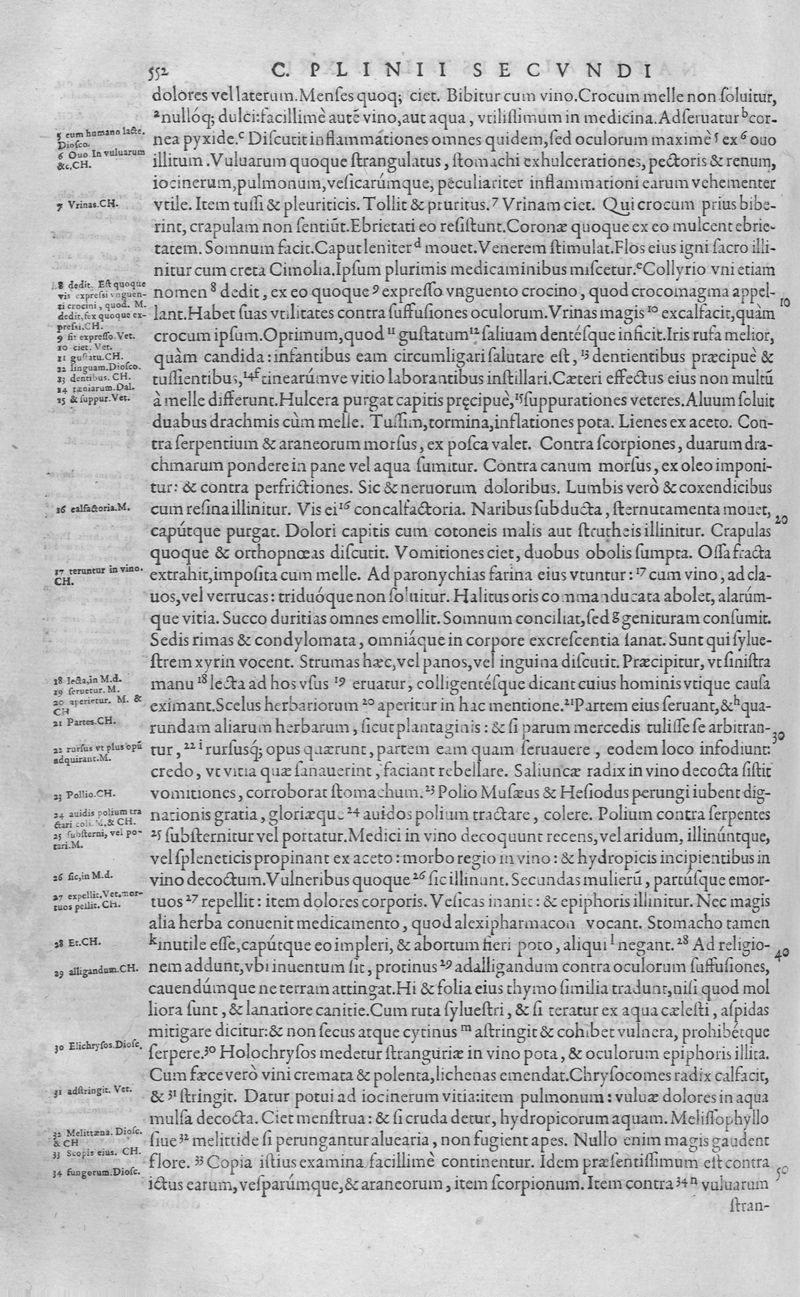 552 C. PLINII SECVNDI
dolores vel laterum.Menſes quoq; ciet. Bibitur cum vino.Crocum melle non ſoluitur,
ᵃnullóq; dulci:facillimè autē vino,aut aqua, vtiliſſimum in medicina.Adſeruatur ᵇcor-
5 cum humano lacte.
Dioſco.
nea pyxide.ᶜ Diſcutit inflammationes omnes quidem,ſed oculorum maximè ⁵ ex ⁶ ouo
6 Ouo In vuluarum
&c.CH.
illitum .Vuluarum quoque ſtrangulatus, ſtomachi exhulcerationes, pectoris & renum,
iocinerum,pulmonum,veſicarúmque, peculiariter inflammationi earum vehementer
7 Vrinas.CH.
vtile. Item tuſſi & pleuriticis. Tollit & pruritus.⁷ Vrinam ciet. Qui crocum prius bibe-
rint, crapulam non ſentiūt.Ebrietati eo reſiſtunt.Coronæ quoque ex eo mulcent ebrie-
tatem. Somnum facit.Caput leniter ᵈ mouet.Venerem ſtimulat.Flos eius igni ſacro illi-
nitur cum creta Cimolia.Ipſum plurimis medicaminibus miſcetur.ᵉCollyrio vni etiam
8 dedit. Eſt quoque
vis expreſsi vnguen-
ti crocini, quod. M.
dedit,fex quoque ex-
preſsi.CH.
nomen ⁸ dedit, ex eo quoque ⁹ expreſſo vnguento crocino, quod crocomagma appel- 10
lant.Habet ſuas vtilitates contra ſuffuſiones oculorum.Vrinas magis ¹⁰ excalfacit,quàm
9 fit expreſſo.Vet.
10 ciet. Vet.
crocum ipſum.Optimum,quod ¹¹ guſtatum ¹² ſaliuam dentéſque inficit.Iris rufa melior,
11 guſtatu.CH.
12 linguam.Dioſco.
quàm candida: infantibus eam circumligari ſalutare eſt, ¹³ dentientibus præcipuè &
13 dentibus. CH.
14 tæniarum.Dal.
tuſſientibus,¹⁴ᶠtinearúmve vitio laborantibus inſtillari.Cæteri effectus eius non multū
15 & ſuppur.Vet.
à melle differunt.Hulcera purgat capitis pręcipuè,¹⁵ſuppurationes veteres.Aluum ſoluit
duabus drachmis cùm melle. Tuſſim,tormina,inflationes pota. Lienes ex aceto. Con-
tra ſerpentium & araneorum morſus, ex poſca valet. Contra ſcorpiones, duarum dra-
chmarum pondere in pane vel aqua ſumitur. Contra canum morſus, ex oleo imponi-
tur: & contra perfrictiones. Sic & neruorum doloribus. Lumbis verò & coxendicibus
16 calfactoria.M.
cum reſina illinitur. Vis ei ¹⁶ concalfactoria. Naribus ſubducta, ſternutamenta mouet, 20
capútque purgat. Dolori capitis cum cotoneis malis aut ſtrutheis illinitur. Crapulas
quoque & orthopnœas diſcutit. Vomitiones ciet, duobus obolis ſumpta. Oſſa fracta
17 teruntur in vino.
CH.
extrahit,impoſita cum melle. Ad paronychias farina eius vtuntur: ¹⁷ cum vino, ad cla-
uos,vel verrucas: triduóque non ſoluitur. Halitus oris commanducata abolet, alarúm-
que vitia. Succo duritias omnes emollit. Somnum conciliat,ſed ᵍ genituram conſumit.
Sedis rimas & condylomata, omniáque in corpore excreſcentia ſanat. Sunt qui ſylue-
ſtrem xyrin vocent. Strumas hæc,vel panos,vel inguina diſcutit. Præcipitur, vt ſiniſtra
18 lecta,in M.d.
19 ſeruetur. M.
manu ¹⁸ lecta ad hos vſus ¹⁹ eruatur, colligentéſque dicant cuius hominis vtique cauſa
20 aperietur. M. &
CH
eximant.Scelus herbariorum ²⁰ aperitur in hac mentione.²¹Partem eius ſeruant,&ʰqua-
21 Partes.CH.
rundam aliarum herbarum, ſicut plantaginis: & ſi parum mercedis tuliſſe ſe arbitran- 30
22 rurſus vt plus opū
adquirant.M.
tur, ²² ⁱ rurſuſq; opus quærunt, partem eam quam ſeruauere, eodem loco infodiunt:
credo, vt vitia quæ ſanauerint, faciant rebellare. Saliuncæ radix in vino decocta ſiſtit
23 Pollio.CH.
vomitiones, corroborat ſtomachum.²³ Polio Muſæus & Heſiodus perungi iubent dig-
24 auidis polium tra
ctari coli.M.& CH.
nationis gratia, gloriæque ²⁴ auidos polium tractare, colere. Polium contra ſerpentes
25 ſubſterni, vel po-
tari.M.
²⁵ ſubſternitur vel portatur.Medici in vino decoquunt recens,vel aridum, illinúntque,
vel ſpleneticis propinant ex aceto: morbo regio in vino: & hydropicis incipientibus in
26 ſic,in M.d.
vino decoctum.Vulneribus quoque ²⁶ ſic illinunt. Secundas mulierū, partúſque emor-
27 expellit.Vet.mor-
tuos pellit. CH.
tuos ²⁷ repellit: item dolores corporis. Veſicas inanit: & epiphoris illinitur. Nec magis
alia herba conuenit medicamento, quod alexipharmacon vocant. Stomacho tamen
28 Et.CH.
ᵏinutile eſſe,capútque eo impleri, & abortum fieri poto, aliqui ˡ negant.²⁸ Ad religio- 40
29 alligandum.CH.
nem addunt,vbi inuentum ſit, protinus ²⁹ adalligandum contra oculorum ſuffuſiones,
cauendúmque ne terram attingat.Hi & folia eius thymo ſimilia tradunt,niſi quod mol
liora ſunt, & lanatiore canitie.Cum ruta ſylueſtri, & ſi teratur ex aqua cæleſti, aſpidas
mitigare dicitur:& non ſecus atque cytinus ᵐ aſtringit & cohibet vulnera, prohibétque
30 Elichryſos.Dioſc.
ſerpere.³⁰ Holochryſos medetur ſtranguriæ in vino pota, & oculorum epiphoris illita.
Cum fæce verò vini cremata & polenta,lichenas emendat.Chryſocomes radix calfacit,
31 adſtringit. Vet.
& ³¹ ſtringit. Datur potui ad iocinerum vitia:item pulmonum: vuluæ dolores in aqua
mulſa decocta. Ciet menſtrua: & ſi cruda detur, hydropicorum aquam. Meliſſophyllo
32 Melittæna. Dioſc.
& CH
ſiue ³² melittide ſi perungantur aluearia, non fugient apes. Nullo enim magis gaudent
33 Scopis eius. CH.
flore. ³³ Copia iſtius examina facillimè continentur. Idem præſentiſſimum eſt contra 50
34 fungorum.Dioſc.
ictus earum,veſparúmque,& araneorum, item ſcorpionum. Item contra ³⁴ ⁿ vuluarum
ſtran-